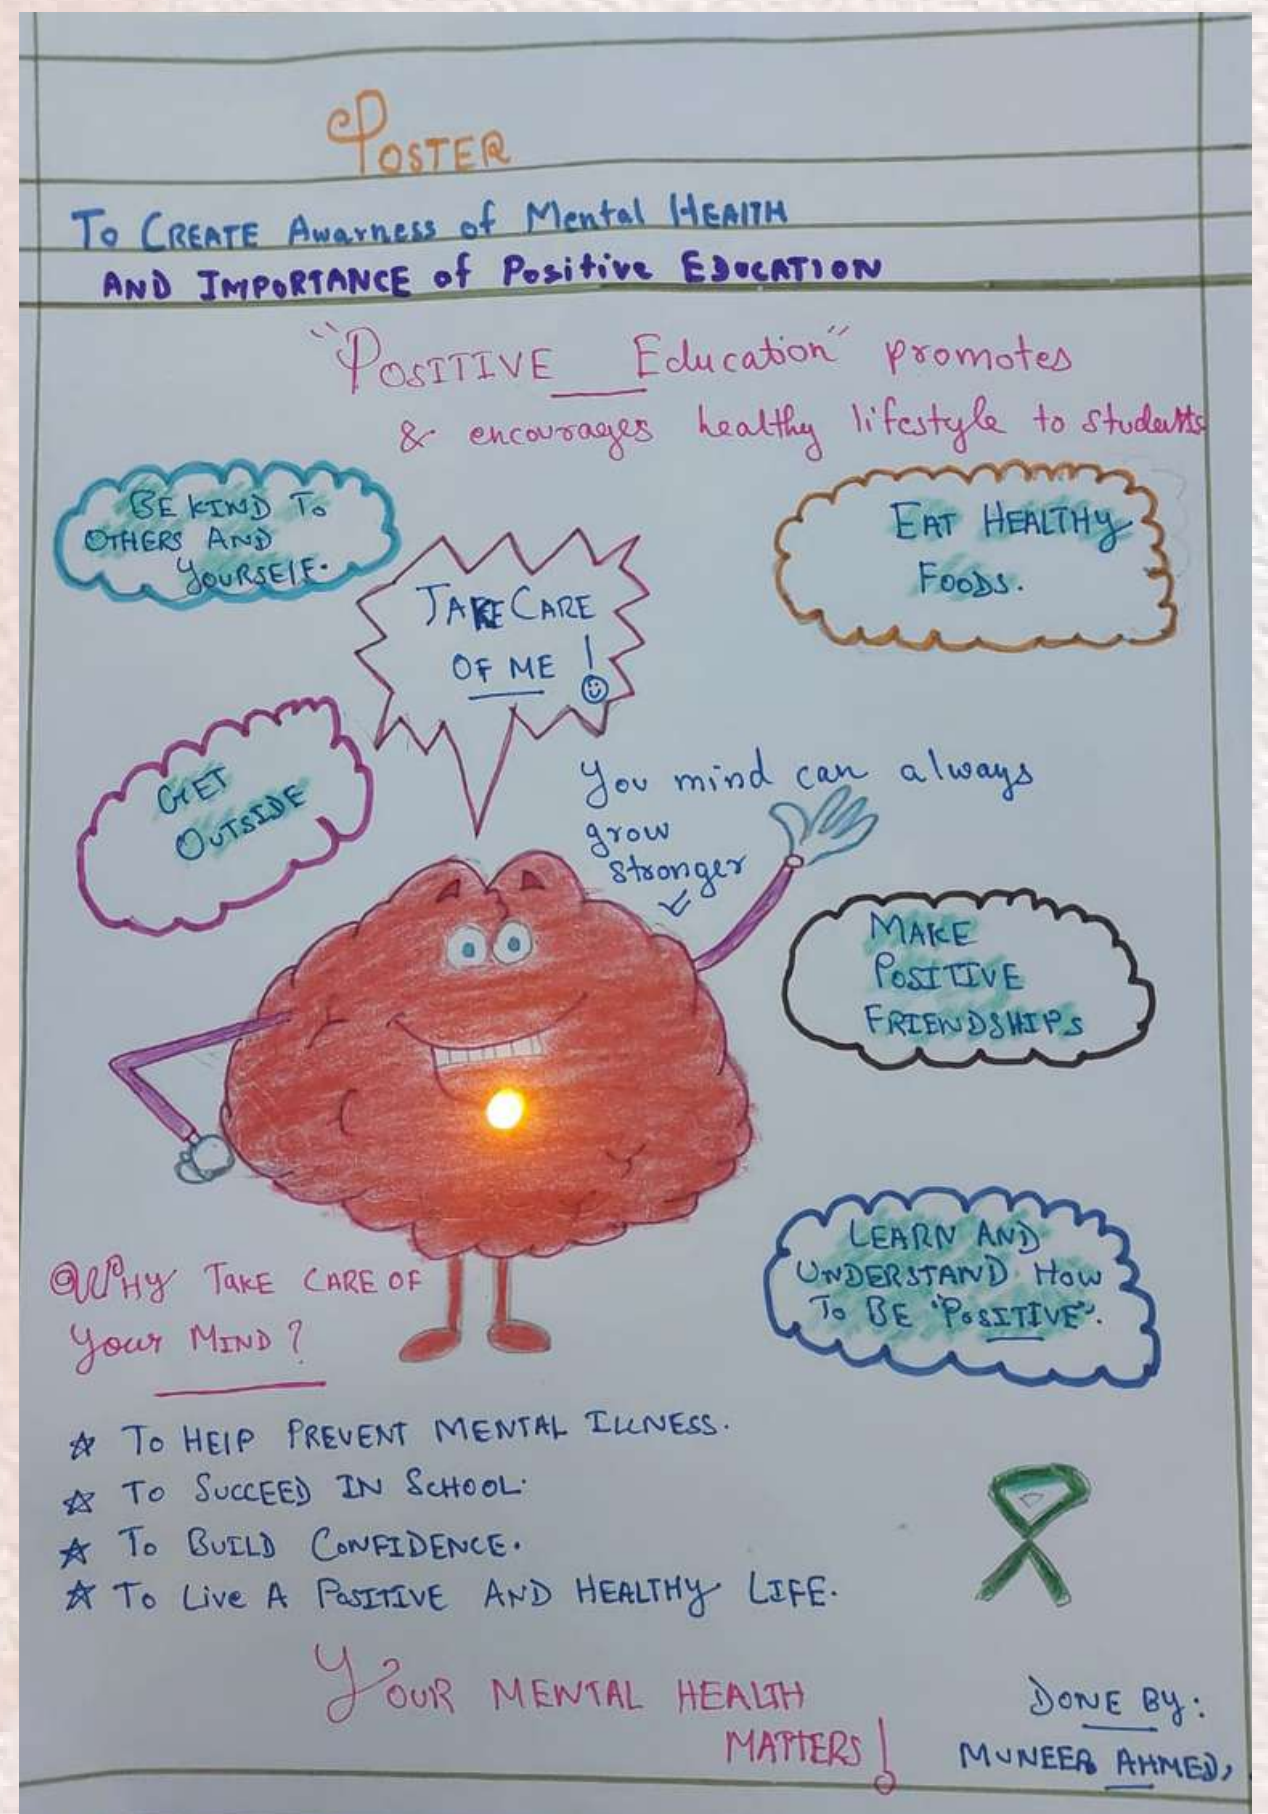 POSTER
TO CREATE Awarness of Mental HEAlTH
AND IMPORTANCE of Positive EDUCATION
"POSITIVE Education" promotes
& encourages healthy lifestyle to students
BE KIND TO
OTHERS AND
YOURSELF.
EAT HEALTHY
FOODS.
TAKE CARE
OF ME !
GET
OUTSIDE
You mind can always
grow
stronger
MAKE
POSITIVE
FRIENDSHIPS
LEARN AND
UNDERSTAND HOW
TO BE "POSITIVE".
WHY TAKE CARE OF
Your MIND?
☆ TO HElP PREVENT MENTAL ILLNESS.
☆ TO SUCCEED IN SCHOOL.
☆ TO BUILD CONFIDENCE.
☆ TO Live A POSITIVE AND HEALTHY LIFE.
YOUR MENTAL HEALTH
MATTERS!
DONE BY:
MUNEER AHMED,